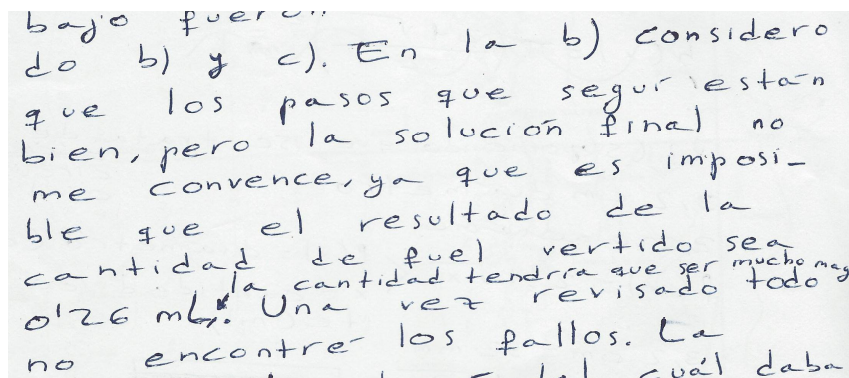 bajo fueron
do b) y c). En la b) considero
que los pasos que seguí están
bien, pero la solución final no
me convence, ya que es imposi-
ble que el resultado de la
cantidad de fuel vertido sea
la cantidad tendría que ser mucho may
0'26 mL. Una vez revisado todo
no encontré los fallos. La
cuál daba